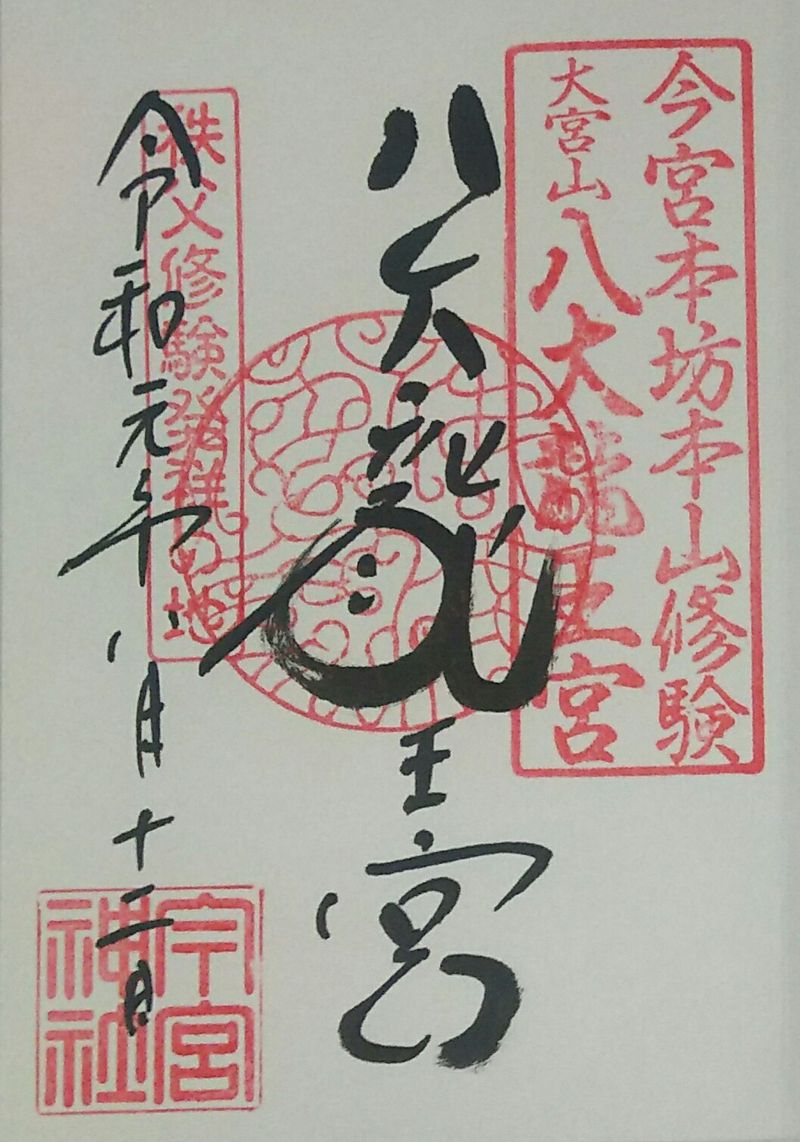 今宮本坊本山修験
大宮山八大龍王宮
八大龍王宮
秩父修験発祥の地
令和元年八月十二日
今宮
神社